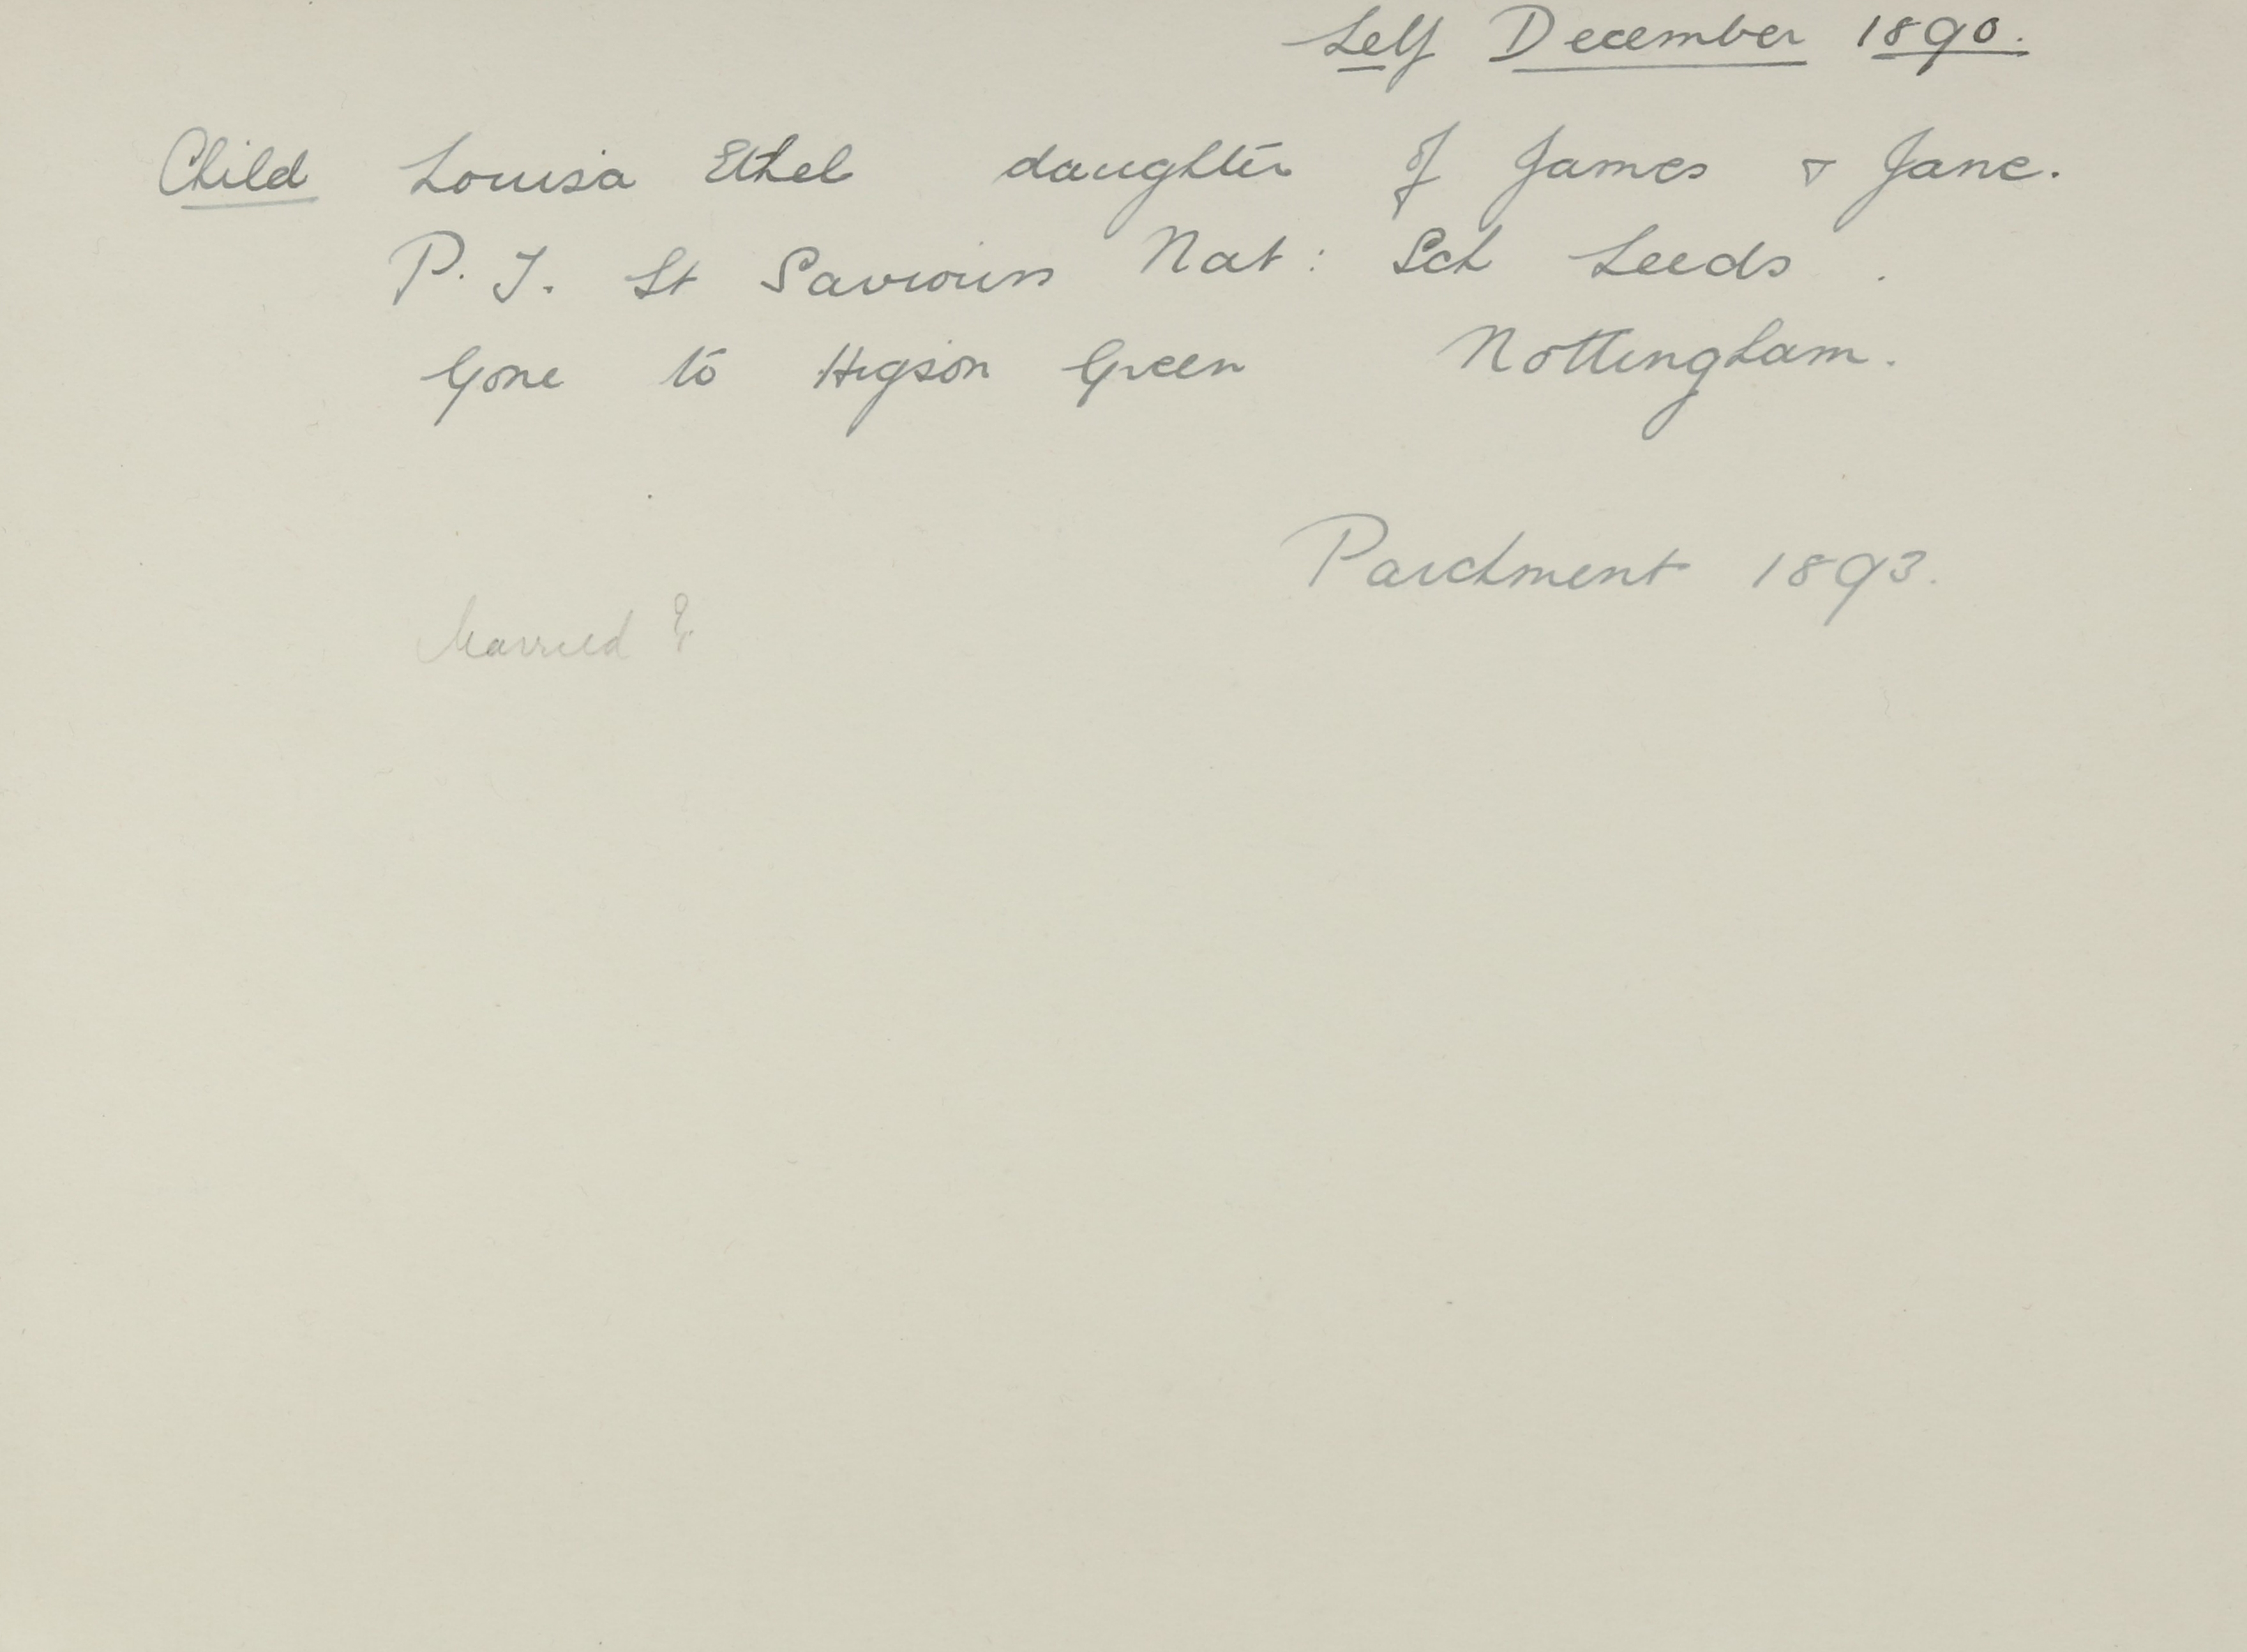 Left December 1890.
Child Louisa Ethel daughter of James & Jane.
P. T. St Saviours Nat: Sch Leeds.
Gone to Hyson Green Nottingham.
Parchment 1893.
Married?